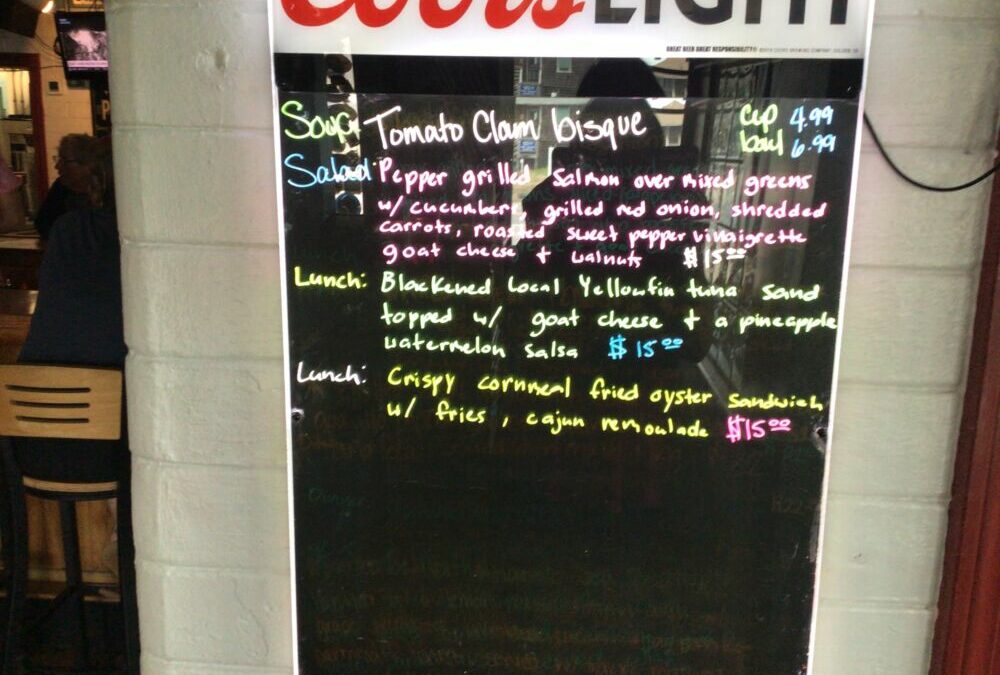 Coors LIGHT
GREAT BEER GREAT RESPONSIBILITY®
Soup: Tomato Clam bisque cup 4.99
bowl 6.99
Salad: Pepper grilled Salmon over mixed greens
w/ cucumbers, grilled red onion, shredded
carrots, roasted sweet pepper vinaigrette
goat cheese + walnuts $15.00
Lunch: Blackened Local Yellowfin tuna sand
topped w/ goat cheese + a pineapple
watermelon salsa $15.00
Lunch: Crispy cornmeal fried oyster sandwich
w/ fries, cajun remoulade $15.00